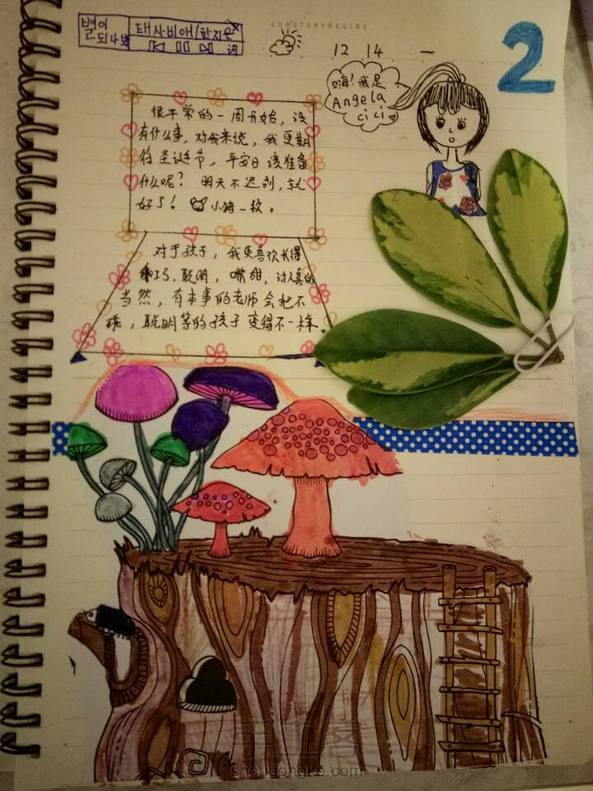 별이
되나봐
태사비애/한지은
词
12 14 一
2
嗨!我是
Angela
cici
很平常的一周开始,没
有什么事,对我来说,我更期
待圣诞节,平安日该准备
什么呢? 明天不迟到,就
好了! 小猪一枚。
对于孩子,我更喜欢长得
乖巧,聪明,嘴甜,讨人喜的
当然,有本事的老师会把不
乖,聪明等的孩子变得不一样.